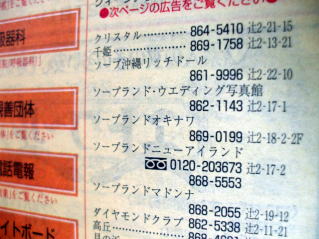 ●次ページの広告をご覧ください●
クリスタル 864-5410 辻2-21-15
千姫 869-1758 辻2-13-21
ソープ沖縄リッチドール
861-9996 辻2-22-10
ソープランド・ウエディング写真館
862-1143 辻2-17-1
ソープランドオキナワ
869-0199 辻2-18-2-2F
ソープランドニューアイランド
0120-203673 辻2-17-2
868-5553
ソープランドマドンナ
868-2055 辻2-19-12
ダイヤモンドクラブ 862-5338 辻2-11-21
高丘 868
吸器科
善団体
話電報
イトボード